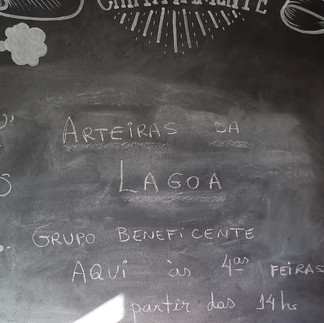 ARTEIRAS DA
LAGOA
GRUPO BENEFICENTE
AQUI às 4ªs FEIRAS
partir das 14hs